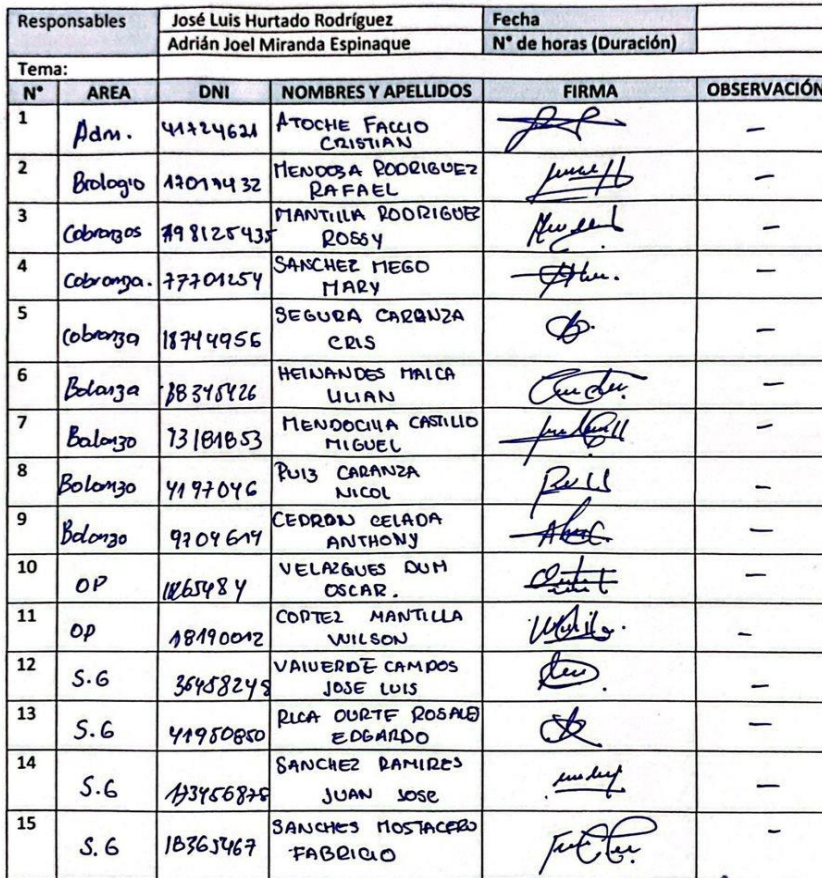 Responsables José Luis Hurtado Rodríguez Fecha
Adrián Joel Miranda Espinaque N° de horas (Duración)
Tema:
N° AREA DNI NOMBRES Y APELLIDOS FIRMA OBSERVACIÓN
1 Adm. 41724621 ATOCHE FACCIO CRISTIAN —
2 MENDOZA RODRIGUEZ RAFAEL —
3 Cobranzos MANTILLA RODRIGUEZ ROSSY —
4 Cobranza. 77701254 SANCHEZ MEGO MARY —
5 Cobranza 18744956 SEGURA CARANZA CRIS —
6 Balanza MALCA —
7 Balanzo 73181853 MENDOCILLA CASTILLO MIGUEL —
8 Bolanzo 4197046 RUIZ CARANZA NICOL —
9 Bolanzo 9704614 CEDRON CELADA ANTHONY —
10 OP OSCAR. —
11 OP 18190012 CORTEZ MANTILLA WILSON —
12 S.G 36458248 VALVERDE CAMPOS JOSE LUIS —
13 S.G 41950850 EDGARDO —
14 S.G SANCHEZ RAMIRES JUAN JOSE —
15 S.G 18365467 SANCHES MOSTACERO FABRICIO -